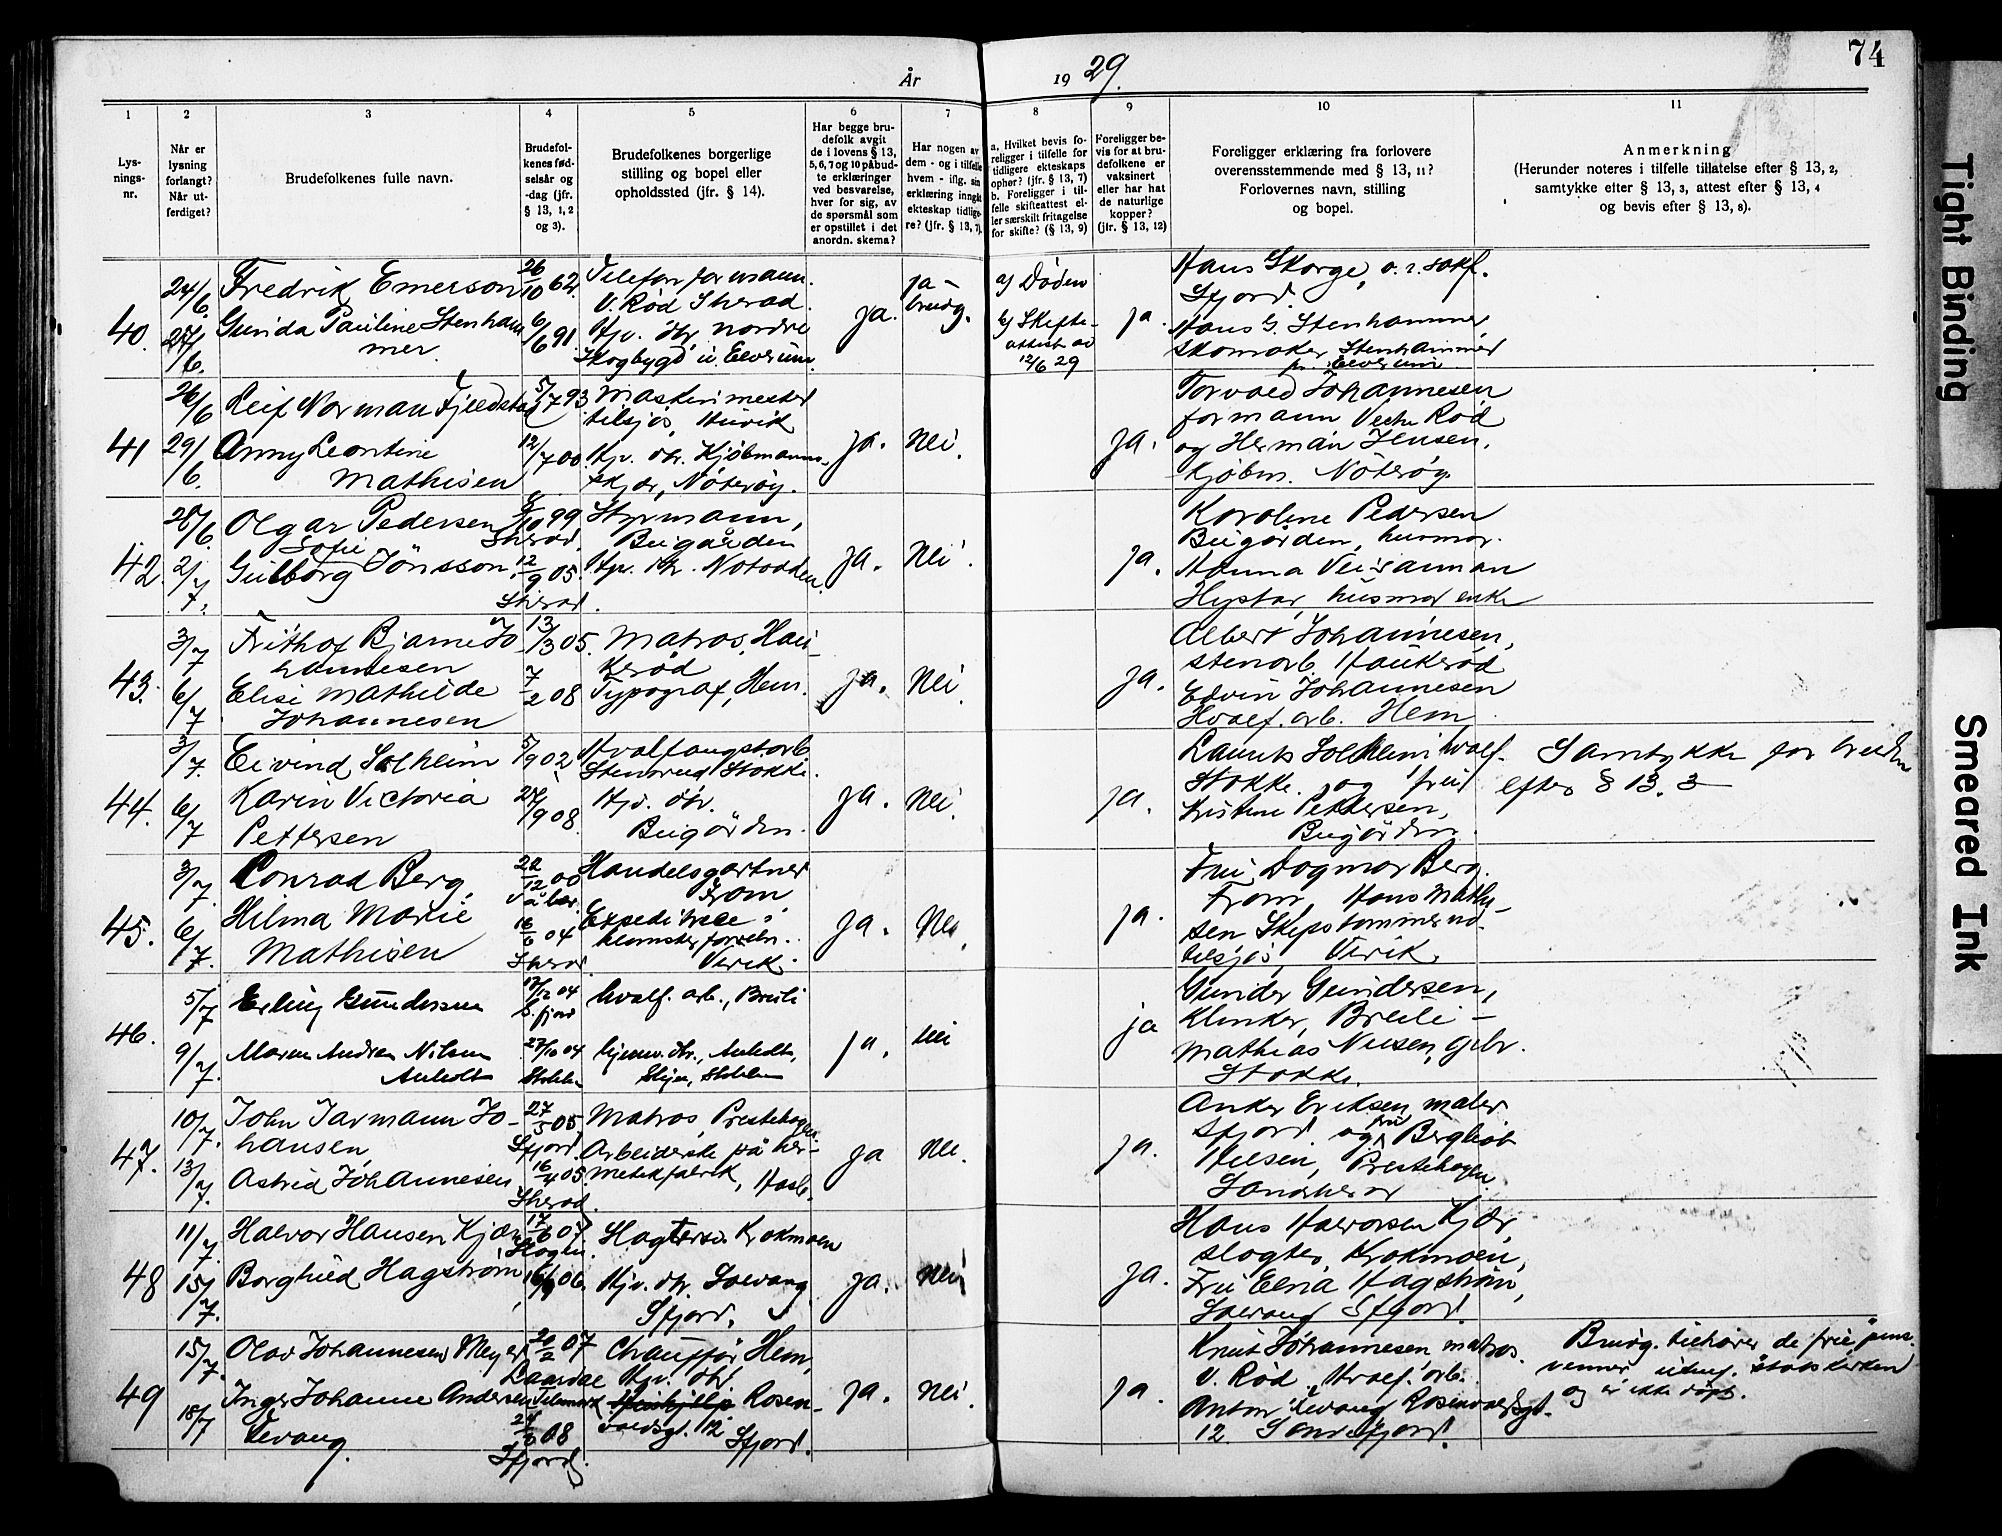 74
År 1929.
1 2 3 4 5 6 7 8 9 10 11
Lysningsnr.
Når er lysning forlangt? Når utferdiget?
Brudefolkenes fulle navn.
Brudefolkenes fødselsår og -dag (jfr. § 13, 1, 2 og 3).
Brudefolkenes borgerlige stilling og bopel eller opholdssted (jfr. § 14).
Har begge brudefolk avgit de i lovens § 13, 5, 6, 7 og 10 påbudte erklæringer ved besvarelse, hver for sig, av de spørsmål som er opstillet i det anordn. skema?
Har nogen av dem - og i tilfelle hvem - iflg. sin erklæring inngått ekteskap tidligere? (jfr. § 13, 7).
a. Hvilket bevis foreligger i tilfelle for tidligere ekteskaps ophør? (jfr. § 13, 7)
b. Foreligger i tilfelle skifteattest eller særskilt fritagelse for skifte? (§ 13, 9)
Foreligger bevis for at brudefolkene er vaksinert eller har hat de naturlige kopper? (jfr. § 13, 12)
Foreligger erklæring fra forlovere overensstemmende med § 13, 11? Forlovernes navn, stilling og bopel.
Anmerkning
(Herunder noteres i tilfelle tillatelse efter § 13, 2, samtykke efter § 13, 3, attest efter § 13, 4 og bevis efter § 13, 8).
40.
24/6.
27/6.
Fredrik Emerson
Gunda Pauline Stenhammer
26/10 62.
6/6 91.
Telefonformann.
V. Rød Sherad.
Hjv. dtr. nordre
Skogbygd i Elverum.
ja.
ja - brudg.
a) Døden
b) Skifteattest av
12/6 29
ja.
Hans Skorge, o.r.sakf.
Sfjord.
Hans G. Stenhammer,
skomaker Stenhammer
pr. Elverum
41
26/6
29/6.
Leif Norman Fjeldstad
Anny Leontine
Mathisen
5/7 93
12/7 00.
Maskinmester
tilsjøs, Huvik
Hjv. dtr. Kjøbmannskjær, Nøterøy.
ja.
nei.
ja.
Torvald Johannesen
formann Vestre Rød
og Herman Jensen.
kjøbm. Nøterøy
42.
28/6.
2/7.
Olgar Pedersen
Sofie
Gulborg Jönsson.
10 99
Sherad.
12/9 05.
Sherad.
Styrmann,
Bugården
Hjv. dtr. Notodden.
ja.
nei.
ja.
Karoline Pedersen
Bugården, husmor.
Hanna
Hystad, husmor enke
43.
3/7
6/7
Frithof Bjarne Johannesen
Elise Mathilde
Johannesen
13/3 05.
7/2 08
Matros, Haukerød
Typograf, Hem.
ja.
nei.
ja.
Albert Johannesen,
stenarb. Haukerød
Edvin Johannesen
Hvalf. arb. Hem
44.
3/7.
6/7
Eivind Solheim
Karin Victoria
Pettersen
5/9 02
24/9 08.
Hvalfangstarb
Stensrud Stokke.
Hjv. dtr.
Bugården.
ja.
nei.
ja.
Laurits Solheim hvalf.
Stokke. og fru
Kristine Pettersen,
Bugården.
Samtykke for bruden
efter § 13. 3
45.
3/7.
6/7.
Conrad Berg,
Hilma Marie
Mathisen
22/12 00
Våler.
16/6 04
Sherad.
Handelsgartner
Fram
Expeditrice i
blomsterforretn.
Virik.
ja.
nei.
ja.
Fru Dagmar Berg.
Fram, Hans Mathisen Skipstømmermd
tilsjøs, Virik.
46.
5/7
9/7.
Erling Gundersen
Maren Andrea Nilsen
Anholt
17/12 04
S.fjord
27/10 04
Stokke
hvalf. arb., Breili
hjemv. dtr., Anholt,
Skjee, Stokke
ja.
nei
ja
Gunder Gundersen,
Klinker, Breili -
Mathias Nilsen, gbr.
Stokke.
47.
10/7.
13/7.
John Jarmann Johansen,
Astrid Johannesen
27/5 05.
Sfjord.
16/4 05
Sherad.
Matros, Prestehagen.
Arbeiderske på hermetikfabrik, Hasle.
ja
nei.
ja.
Anker Eriksen, maler
Sfjord. og fru Bergliot
Nilsen, Prestehagen.
Sandeherad
48
11/7.
15/7.
Halvor Hansen Kjær
Borghild Hagstrøm
17/6 07
Slagen.
16/ 06.
Slagter. Krokmoen
Hjv. dtr. Solvang,
Sfjord.
ja.
nei
ja.
Hans Halvorsen Kjær,
slagter, Krokmoen,
Fru Elna Hagstrøm,
Solvang Sfjord.
49
15/7.
18/7
Olav Johannesen Meyer
Inger Johanne Andersen
Levang.
20/2 07
Laardal
Telemark
08
Sfjord.
Chauffør, Hem,
Hjv. dtr.
Rosenvoldsgt. 12
Sfjord.
ja.
nei.
ja.
Knut Johannesen matros.
V. Rød, Hvalf. arb.
Anton Levang Rosenvoldsgt.
12. Sandefjord.
Brudg. tilhører de frie venner utenf. statskirken
og er ikke døpt.
Tight Binding
Smeared Ink